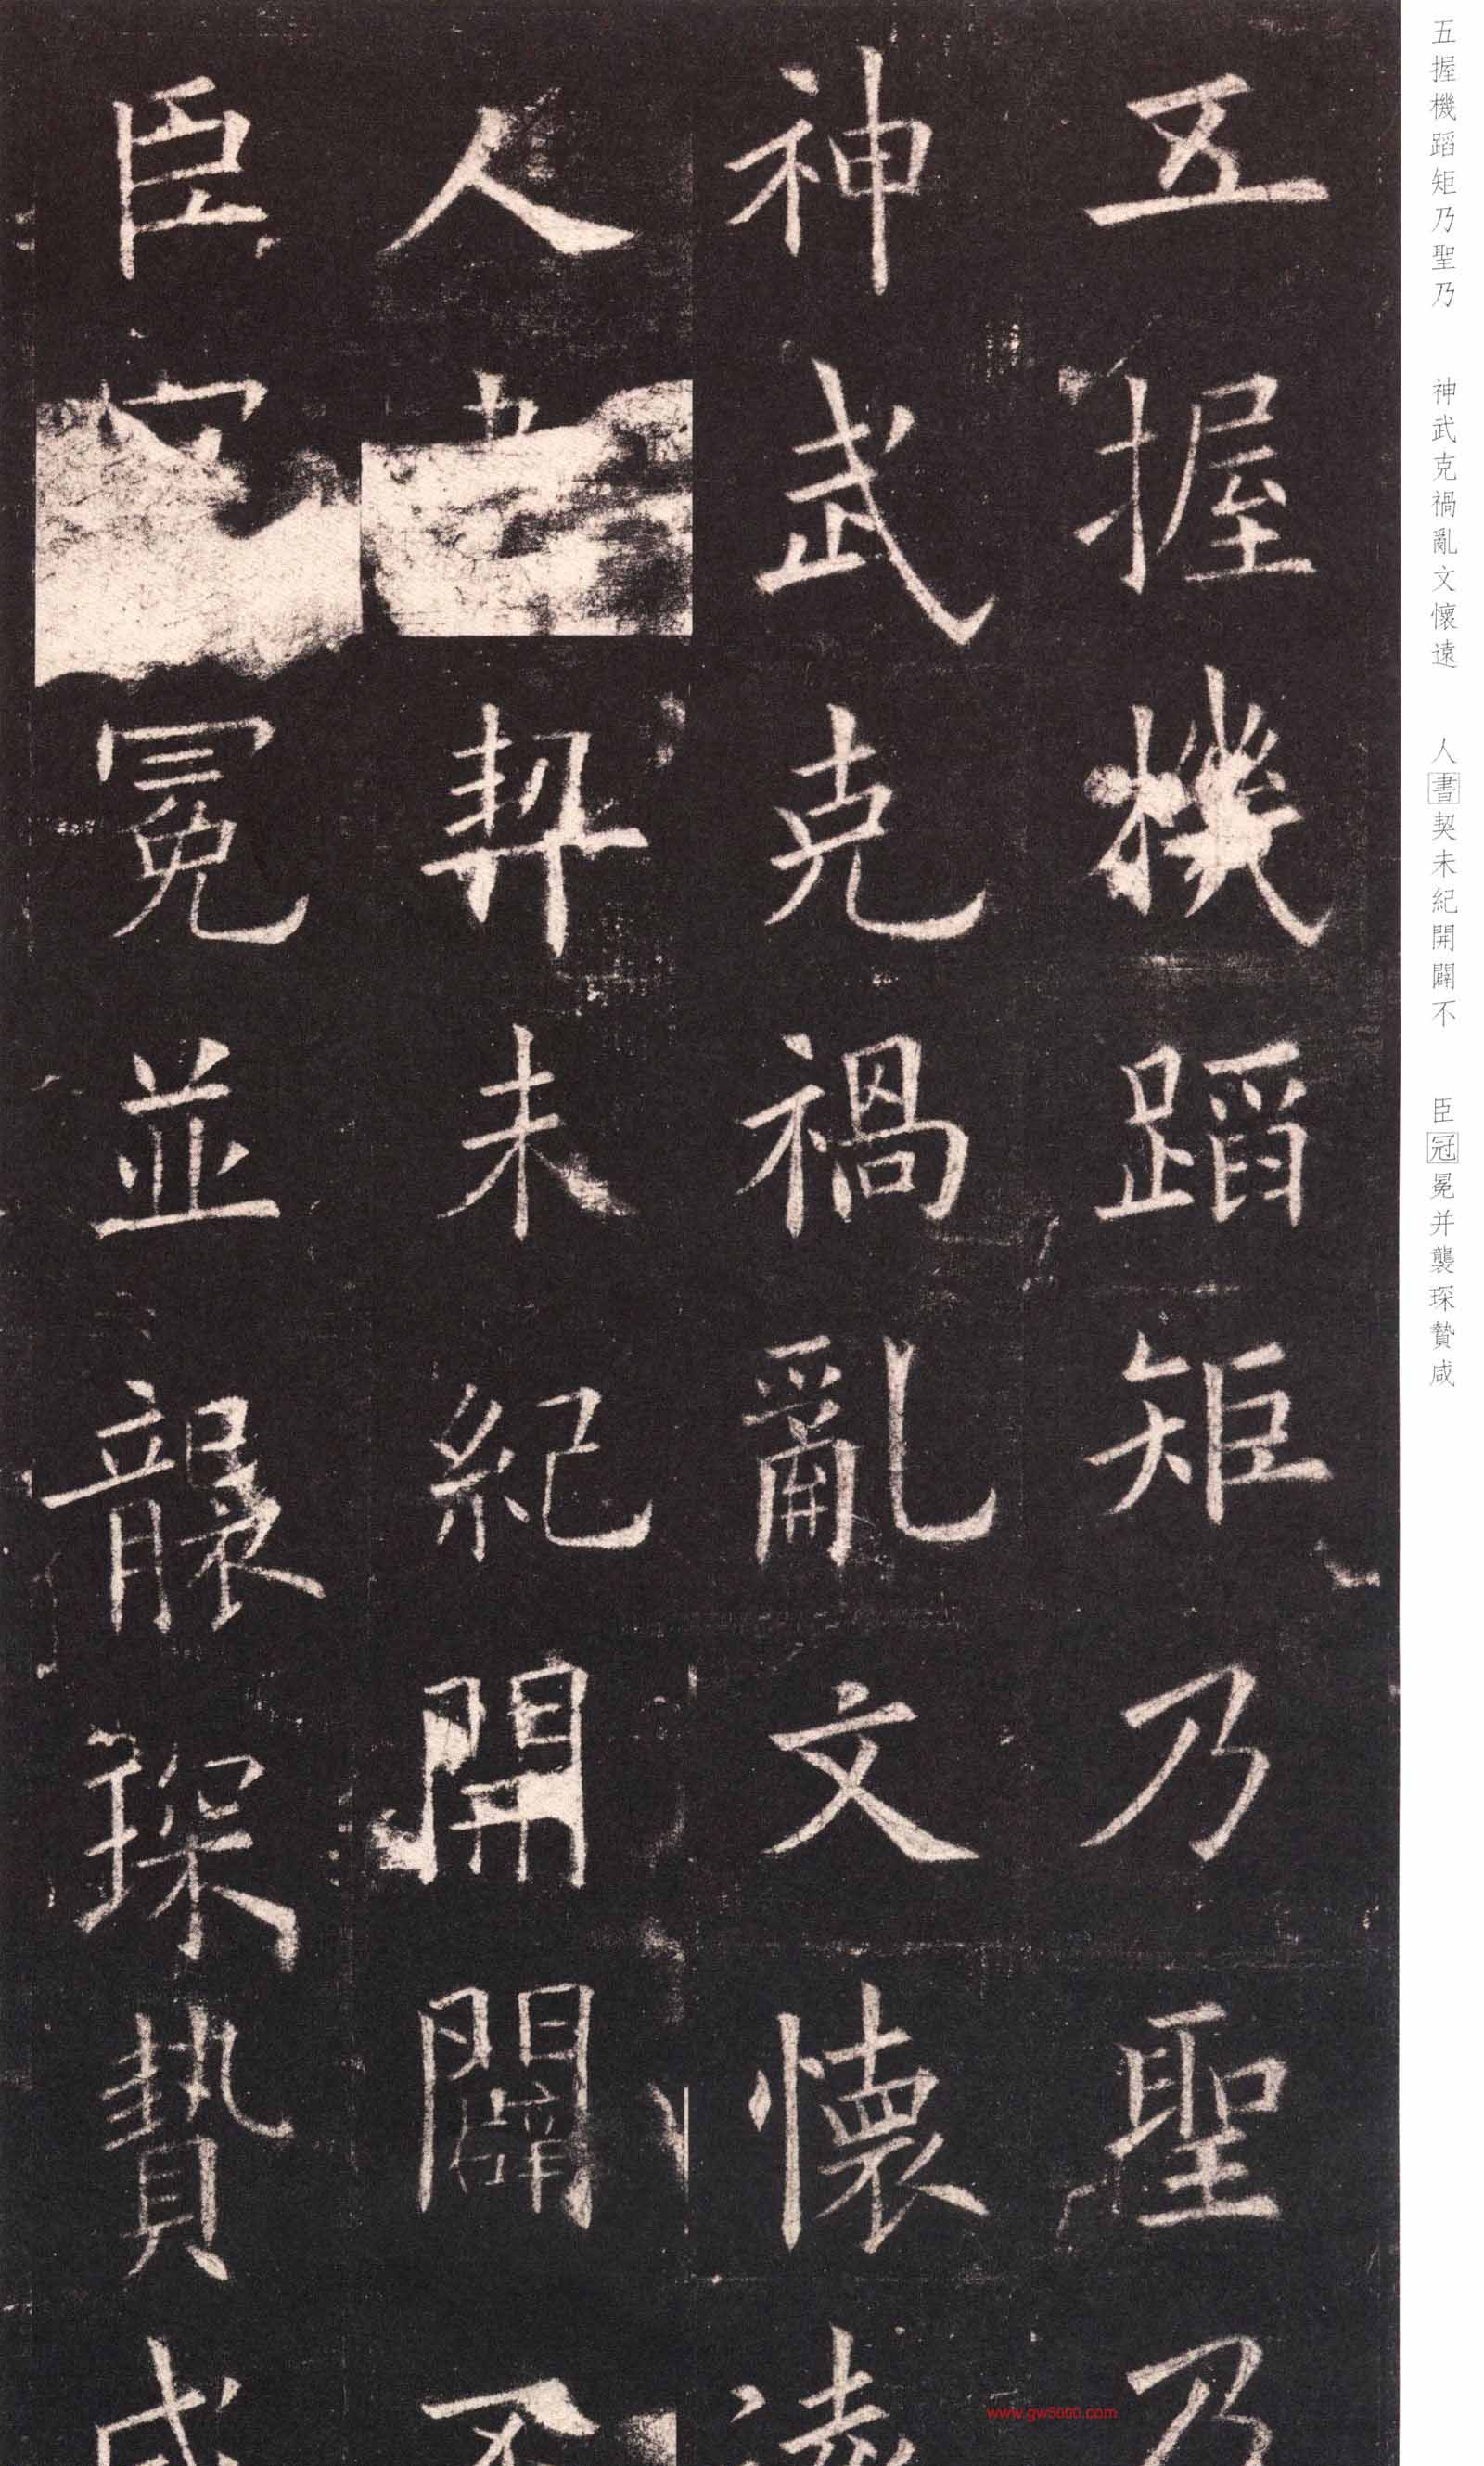 五握機蹈矩乃聖乃
神武克禍亂文懷遠
人契未紀開闢不
臣冕並襲琛贄咸
五握機蹈矩乃聖乃
神武克禍亂文懷遠
人書契未紀開闢不
臣冠冕并襲琛贄咸
www.gw5000.com